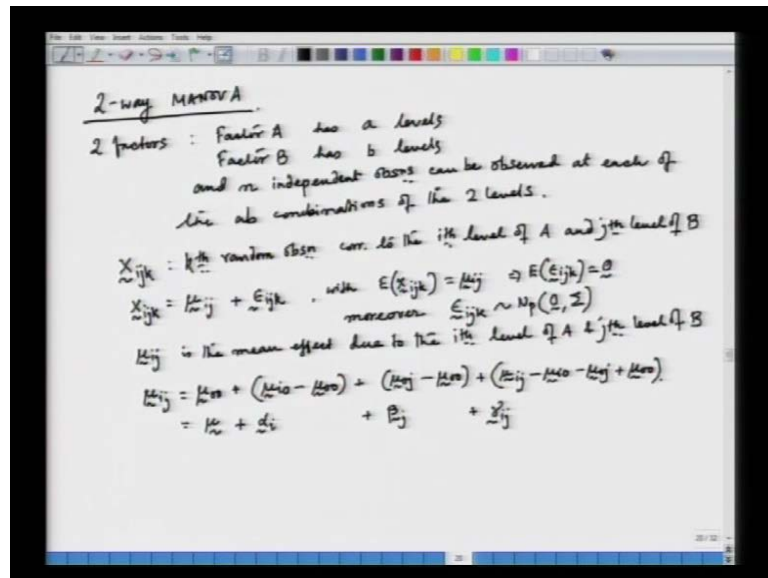 File Edit View Insert Actions Tools Help
2-way MANOVA
2 factors : Factor A has a levels
Factor B has b levels
and n independent obsns can be observed at each of
the ab combinations of the 2 levels.
X_ijk : kth random obsn corr. to the ith level of A and jth level of B
X_ijk = μ_ij + ε_ijk , with E(X_ijk) = μ_ij ⇒ E(ε_ijk) = 0
moreover ε_ijk ~ N_p(0, Σ)
μ_ij is the mean effect due to the ith level of A & jth level of B
μ_ij = μ_00 + (μ_i0 − μ_00) + (μ_0j − μ_00) + (μ_ij − μ_i0 − μ_0j + μ_00).
= μ + α_i + β_j + γ_ij